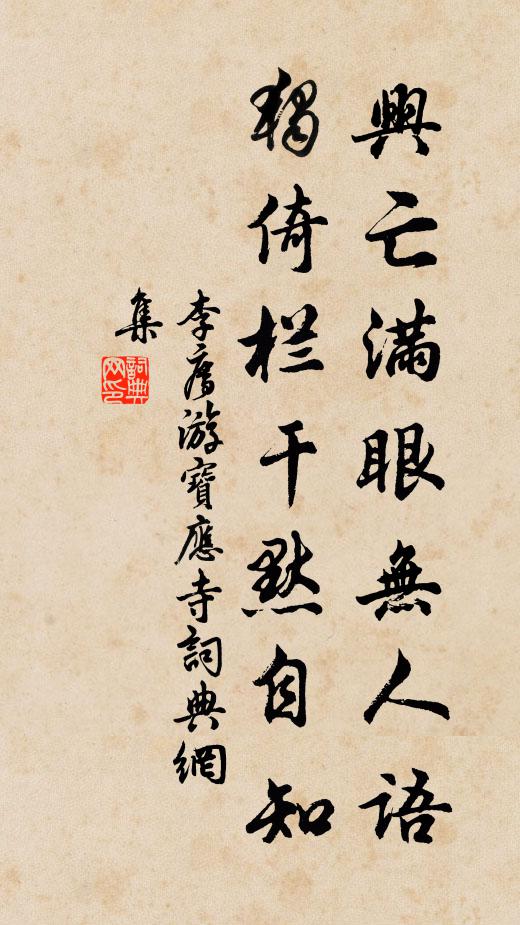 興亡满眼無人語
獨倚栏干默自知
李廌游寶應寺詞典網
集
詞典
网印